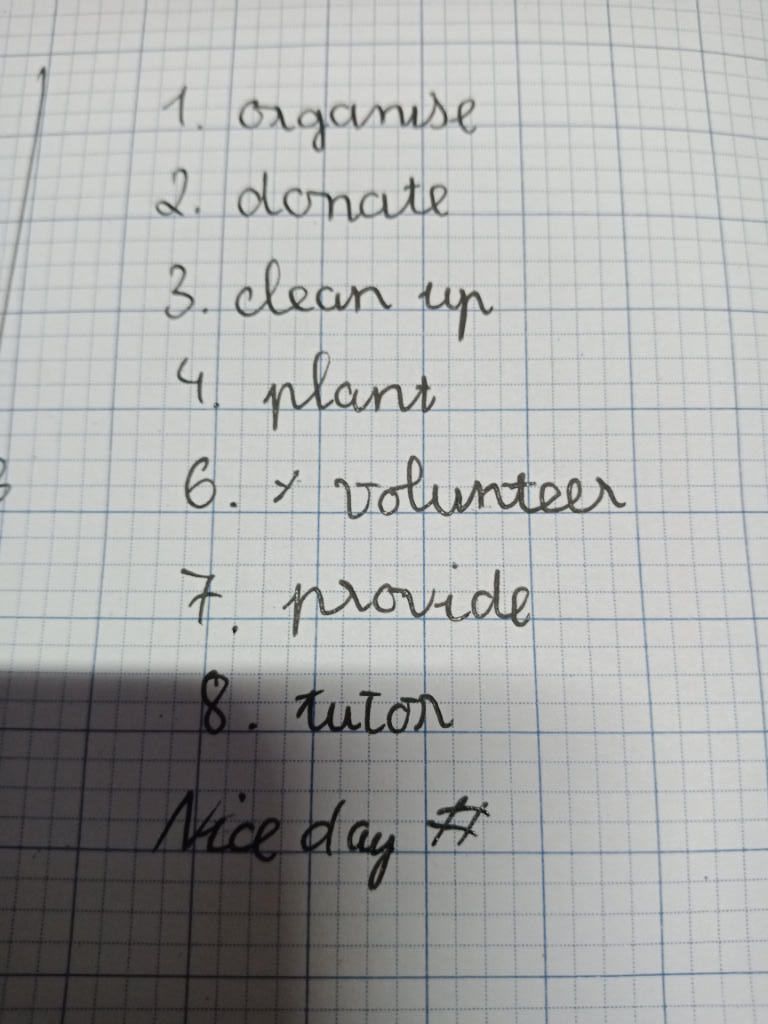 1. organise
2. donate
3. clean up
4. plant
6. x volunteer
7. provide
8. tutor
Nice day #